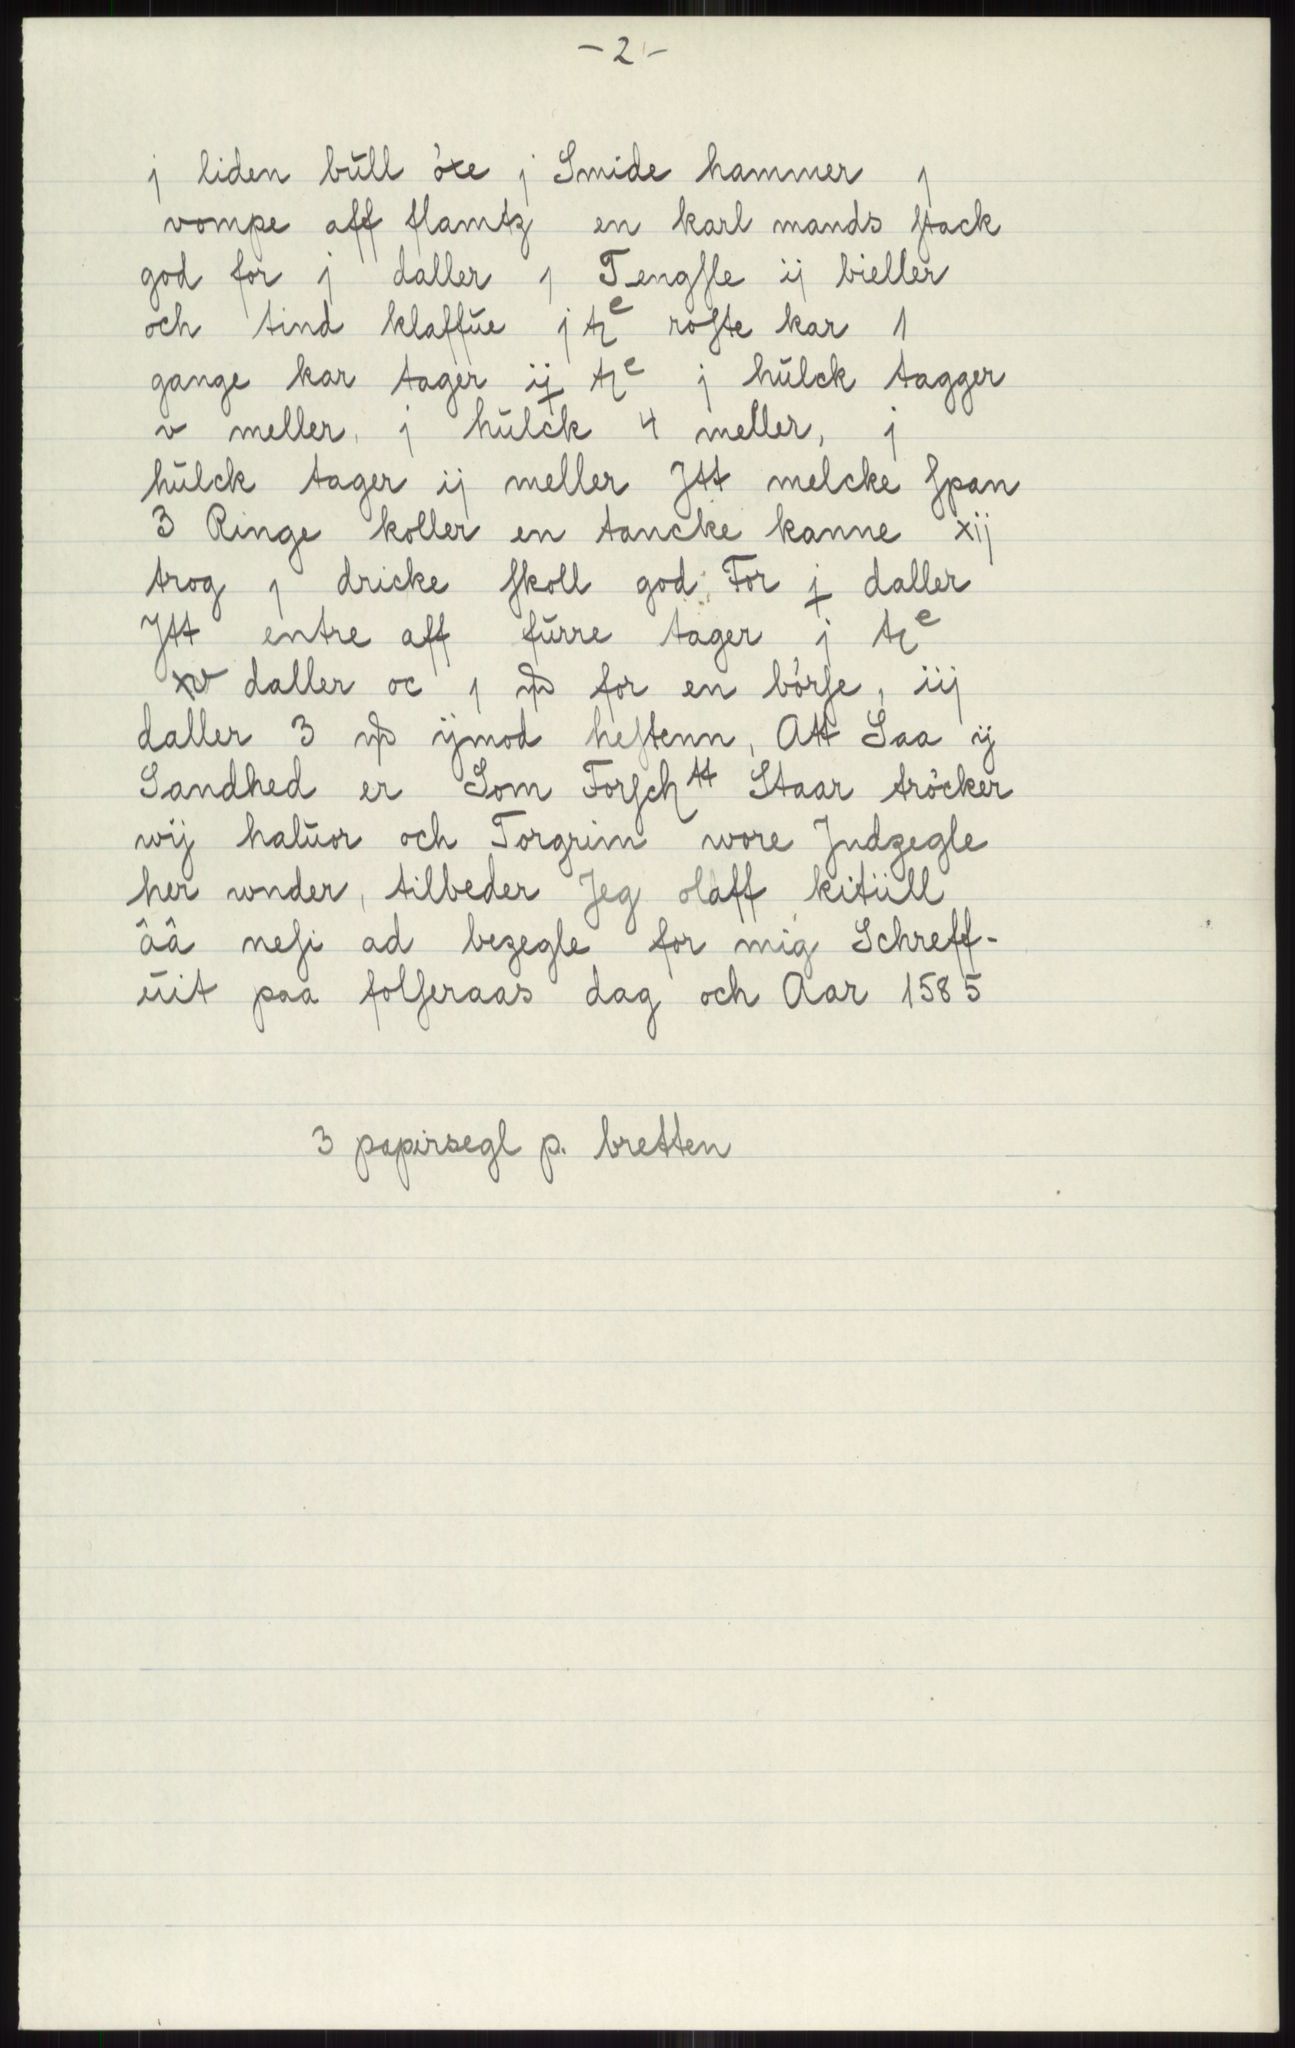 - 2 -
j liden büll öxe j Smide hammer j
vompe aff flamtz en karl mands stack
god for j daller j Tengsle ij bieller
och tind klaffüe j tꝛe roste kar 1
gange kar tager ij tꝛe j hülck tagger
v meller, j hülck 4 meller, j
hülck tager ij meller Jtt melcke span
3 Ringe koller en tancke kanne xij
trog j dricke skoll god For j daller
Jtt entre aff fürre tager j tꝛe
xv daller oc j for en börse, iij
daller 3 ijmod hestenn, Att Saa ij
Sandhed er Som Forschtt Staar tröcker
wij haluor och Torgrim wore Jndzegle
her wnder, tilbeder Jeg olaff kitiill
ââ nesi ad bezegle for mig Schreff-
üit paa folseraas dag och Aar 1585
3 papirsegl p. bretten